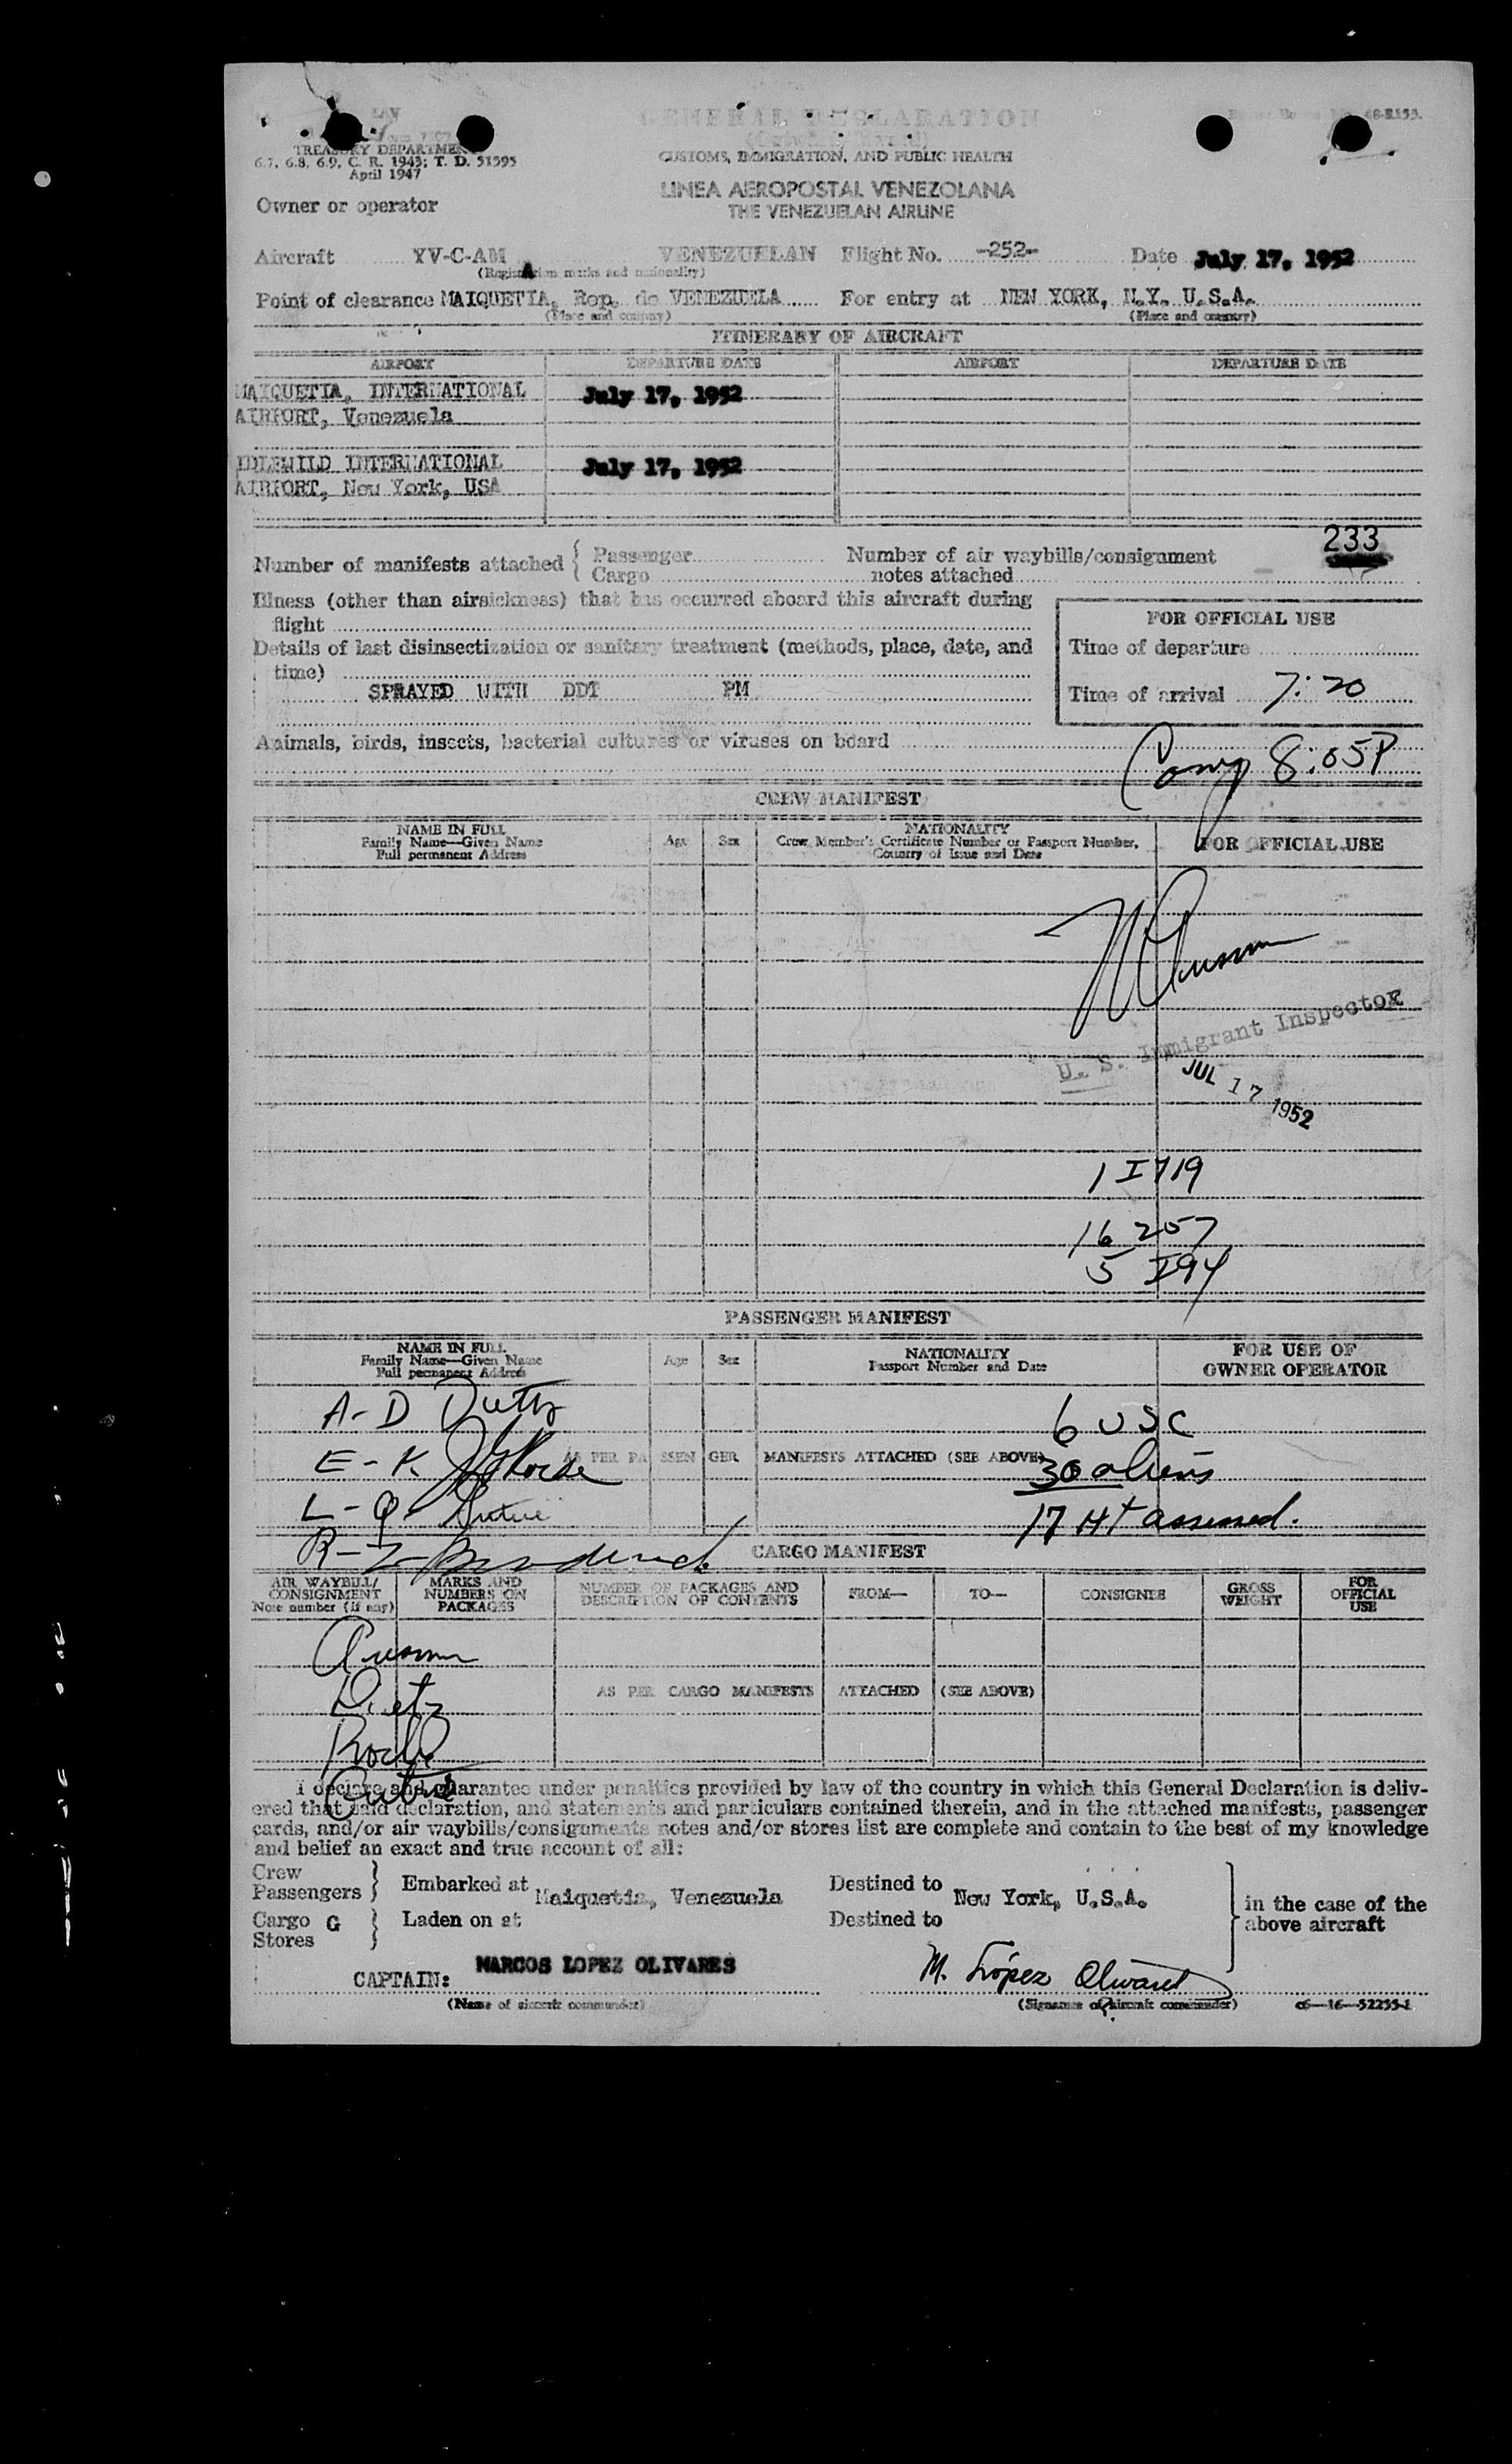 LAV
GENERAL DECLARATION
TREASURY DEPARTMENT
6.7, 6.8, 6.9, C. R. 1943; T. D. 51595
April 1947
CUSTOMS, IMMIGRATION, AND PUBLIC HEALTH
LINEA AEROPOSTAL VENEZOLANA
THE VENEZUELAN AIRLINE
Owner or operator
Aircraft YV-C-AM VENEZUELAN Flight No. -252- Date July 17, 1952
A
(Registration marks and nationality)
Point of clearance MAIQUETIA, Rep. de VENEZUELA For entry at NEW YORK, N.Y. U.S.A.
(Place and country) (Place and country)
ITINERARY OF AIRCRAFT
AIRPORT DEPARTURE DATE AIRPORT DEPARTURE DATE
MAIQUETIA, INTERNATIONAL July 17, 1952
AIRPORT, Venezuela
IDLEWILD INTERNATIONAL July 17, 1952
AIRPORT, New York, USA
233
Number of manifests attached { Passenger Number of air waybills/consignment
Cargo notes attached
Illness (other than airsickness) that has occurred aboard this aircraft during
flight
FOR OFFICIAL USE
Details of last disinsectization or sanitary treatment (methods, place, date, and
time)
Time of departure
SPRAYED WITH DDT PM
Time of arrival 7:20
Animals, birds, insects, bacterial cultures or viruses on board
Comp 8:05P
CREW MANIFEST
NAME IN FULL
Family Name—Given Name
Full permanent Address
Age Sex
NATIONALITY
Crew Member's Certificate Number or Passport Number,
Country of Issue and Date
FOR OFFICIAL USE
U. S. Immigrant Inspector
JUL 17 1952
1 I 719
16 257
5 I94
PASSENGER MANIFEST
NAME IN FULL
Family Name—Given Name
Full permanent Address
Age Sex
NATIONALITY
Passport Number and Date
FOR USE OF
OWNER OPERATOR
A-D
6 USC
E-K
AS PER PASSENGER MANIFESTS ATTACHED (SEE ABOVE)
30 aliens
L-Q
17 Ht assessed.
R-Z
CARGO MANIFEST
AIR WAYBILL/
CONSIGNMENT
Note number (if any)
MARKS AND
NUMBERS ON
PACKAGES
NUMBER OF PACKAGES AND
DESCRIPTION OF CONTENTS
FROM— TO— CONSIGNEE
GROSS
WEIGHT
FOR
OFFICIAL
USE
Dietz
AS PER CARGO MANIFESTS ATTACHED (SEE ABOVE)
I declare and guarantee under penalties provided by law of the country in which this General Declaration is deliv-
ered that said declaration, and statements and particulars contained therein, and in the attached manifests, passenger
cards, and/or air waybills/consignments notes and/or stores list are complete and contain to the best of my knowledge
and belief an exact and true account of all:
Crew
Passengers } Embarked at Maiquetia, Venezuela Destined to New York, U.S.A.
Cargo G } Laden on at Destined to
Stores
in the case of the
above aircraft
CAPTAIN: MARCOS LOPEZ OLIVARES M. López Olivares
(Name of aircraft commander) (Signature of aircraft commander) c6—16—52255-1